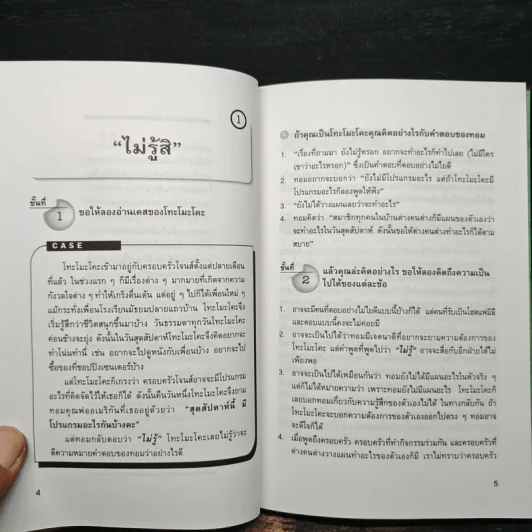 1
“ไม่รู้สิ”
ขั้นที่
1
ขอให้ลองอ่านเคสของโทะโมะโคะ
CASE
โทะโมะโคะเข้ามาอยู่กับครอบครัวโจนส์ตั้งแต่ปลายเดือน
ที่แล้ว ในช่วงแรก ๆ ก็มีเรื่องต่าง ๆ มากมายที่เกิดจากความ
กังวลใจต่าง ๆ ทำให้เกร็งตื่นเต้น แต่อยู่ ๆ ไปก็ได้เพื่อนใหม่ ๆ
แม้กระทั่งเพื่อนโรงเรียนมัธยมปลายแถวบ้าน โทะโมะโคะจึง
เริ่มรู้สึกว่าชีวิตสนุกขึ้นมาบ้าง วันธรรมดาทุกวันโทะโมะโคะ
ค่อนข้างจะยุ่ง ดังนั้นในวันสุดสัปดาห์โทะโมะโคะจึงคิดอยากจะ
ทำโน่นทำนี่ เช่น อยากจะไปดูหนังกับเพื่อนบ้าง อยากจะไป
ซื้อของที่ชอปปิ้งเซนเตอร์บ้าง
แต่โทะโมะโคะก็เกรงว่า ครอบครัวโจนส์อาจจะมีโปรแกรม
อะไรที่คิดจัดไว้ให้เธอก็ได้ ดังนั้นคืนวันหนึ่งโทะโมะโคะจึงถาม
ทอมคุณพ่ออเมริกันที่เธออยู่ด้วยว่า “สุดสัปดาห์นี้ มี
โปรแกรมอะไรกันบ้างคะ”
แต่ทอมกลับตอบว่า “ไม่รู้” โทะโมะโคะเลยไม่รู้ว่าจะ
ตีความหมายคำตอบของทอมว่าอย่างไรดี
4
ถ้าคุณเป็นโทะโมะโคะคุณคิดอย่างไรกับคำตอบของทอม
1. “เรื่องที่ถามมา ยังไม่รู้หรอก อยากจะทำอะไรก็ทำไปเลย (ไม่มีใคร
เขาว่าอะไรหรอก)” ซึ่งเป็นคำตอบที่ตอบอย่างไม่ใยดี
2. ทอมอยากจะบอกว่า “ยังไม่มีโปรแกรมอะไร แต่ถ้าโทะโมะโคะมี
โปรแกรมอะไรก็ลองพูดให้ฟัง”
3. “ยังไม่ได้วางแผนเลยว่าจะทำอะไร”
4. ทอมคิดว่า “สมาชิกทุกคนในบ้านต่างคนต่างก็มีแผนของตัวเองว่า
จะทำอะไรในวันสุดสัปดาห์ ดังนั้นขอให้ต่างคนต่างทำอะไรก็ได้ตาม
สบาย”
ขั้นที่
2
แล้วคุณล่ะคิดอย่างไร ขอให้ลองคิดถึงความเป็น
ไปได้ของแต่ละข้อ
1. อาจจะมีคนที่ตอบอย่างไม่ใยดีแบบนี้บ้างก็ได้ แต่คนที่รับเป็นโฮสแฟมิลี
และตอบแบบนี้คงจะไม่ค่อยมี
2. อาจจะเป็นไปได้ว่าทอมมีเจตนาดีที่อยากจะถามความต้องการของ
โทะโมะโคะ แต่คำพูดที่พูดไปว่า “ไม่รู้” อาจจะสื่อกับอีกฝ่ายได้ไม่
เพียงพอ
3. อาจจะเป็นไปได้เหมือนกันว่า ทอมยังไม่ได้มีแผนอะไรในหัวจริง ๆ
แต่ก็ไม่ได้หมายความว่า เพราะทอมยังไม่มีแผนอะไร โทะโมะโคะก็
เลยบอกทอมเกี่ยวกับความรู้สึกของตัวเองไม่ได้ ในทางกลับกัน ถ้า
โทะโมะโคะจะบอกความต้องการของตัวเองออกไปตรง ๆ ทอมอาจ
จะดีใจก็ได้
4. เมื่อพูดถึงครอบครัว ครอบครัวที่ทำกิจกรรมร่วมกัน และครอบครัวที่
ต่างคนต่างวางแผนทำอะไรของตัวเองก็มี เราไม่ทราบว่าครอบครัว
5